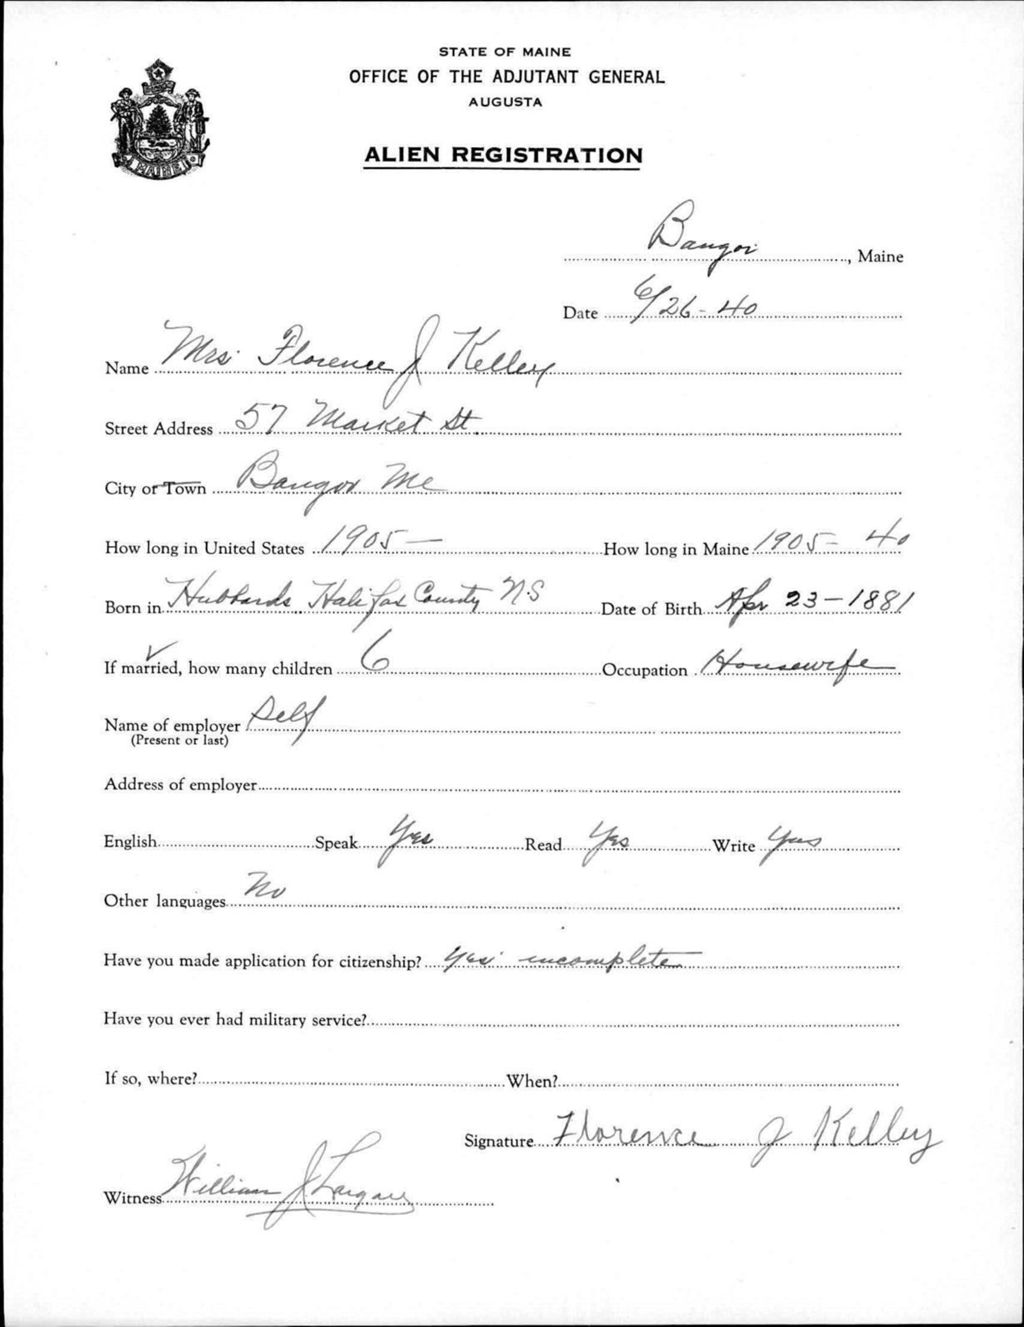 STATE OF MAINE
OFFICE OF THE ADJUTANT GENERAL
AUGUSTA
ALIEN REGISTRATION
MAINE
Bangor, Maine
Date 6/26-40
Name Mrs. Florence J Kelley
Street Address 57 Market St.
City or Town Bangor Me
How long in United States 1905— How long in Maine 1905-40
Born in Hubbards Halifax County N.S Date of Birth Apr 23-1881
If married, how many children 6 Occupation Housewife
Name of employer Self
(Present or last)
Address of employer
English Speak Yes Read Yes Write Yes
Other languages No
Have you made application for citizenship? Yes incomplete
Have you ever had military service?
If so, where? When?
Signature Florence J Kelley
Witness William J